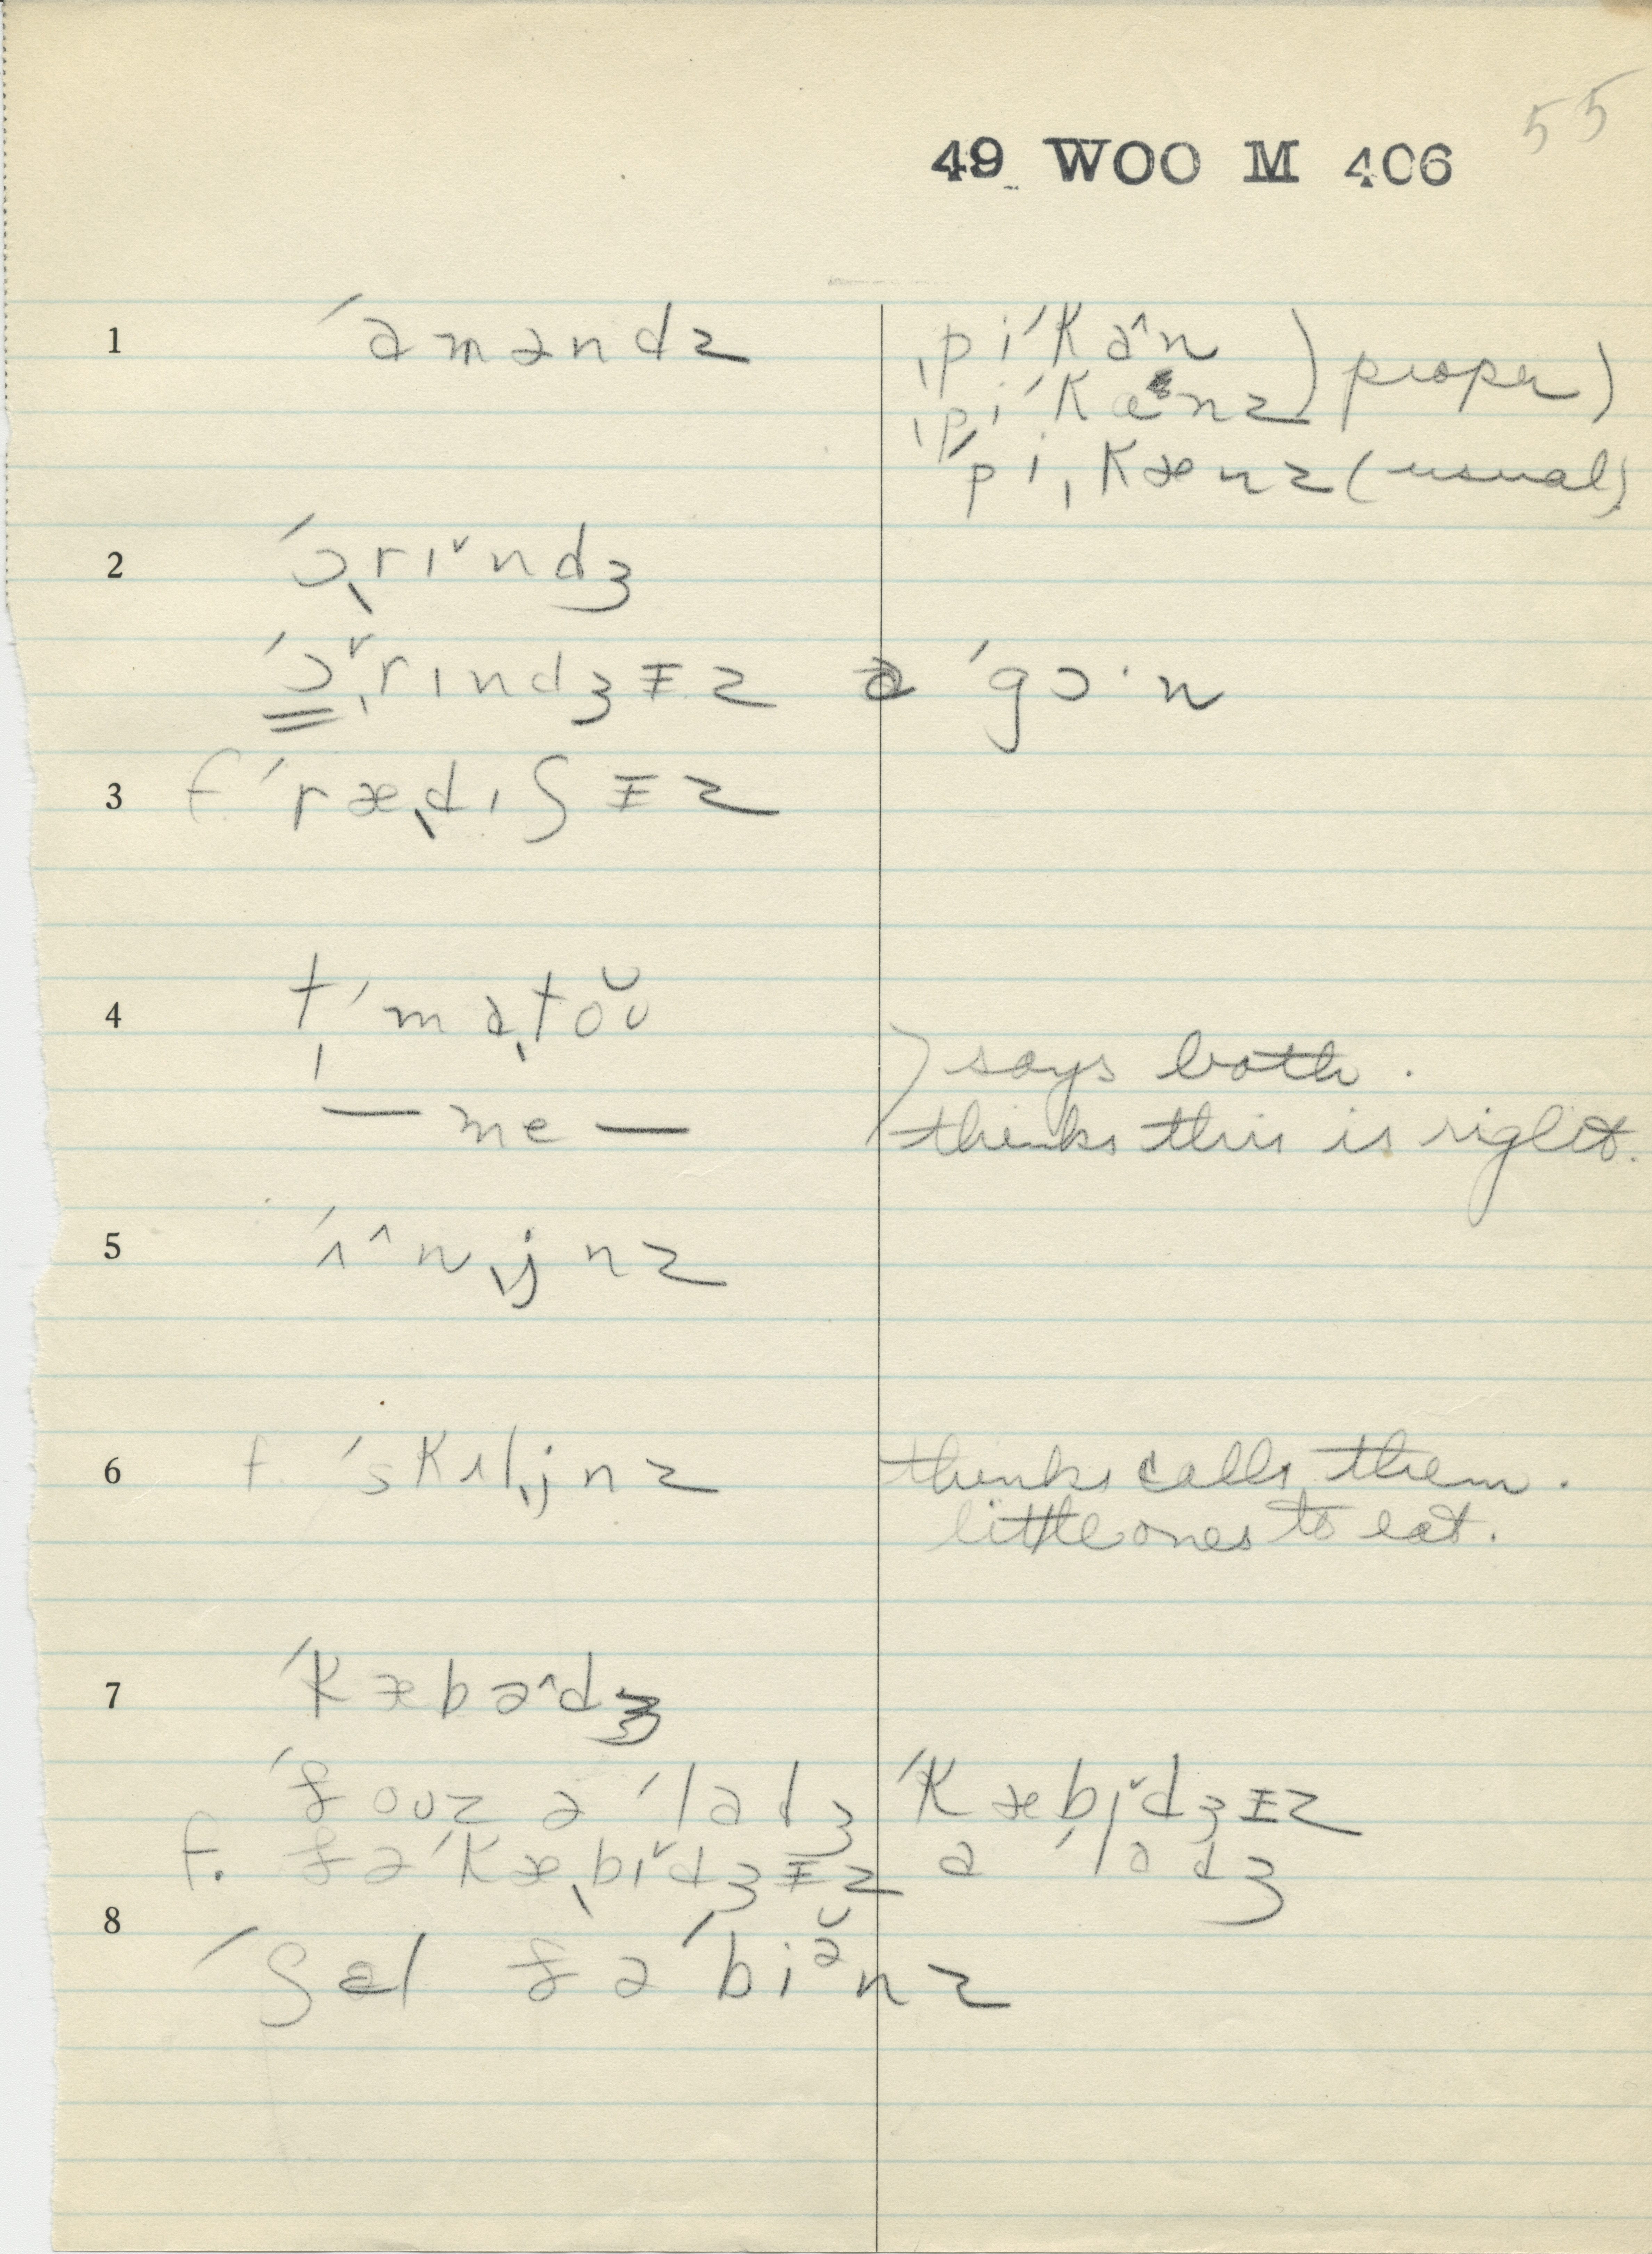 55
49 WOO M 406
1 ˈaməndz ˌpiˈkaˆn ) proper )
ˌpiˈkænz
ˈpiˌkænz (usual)
2 ˈɔˌrɪˇndʒ
ˈɔˇˌrɪndʒɪz əˈgɔ·n
3 f. ˈræˌdɪʃɪz
4 t̩ˈmaˌtoʊ̆ ) says both.
— me — thinks this is right.
5 ˈʌˆnˌjnz
6 f. ˈskʌlˌjnz thinks calls them.
little ones to eat.
7 ˈkæbəˆdʒ
ˈðouz əˈladʒ ˈkæbɪˇdʒɪz
f. ðəˈkæˌbɪˇdʒɪz a ˈladʒ
8 ˈʃɛl ðəˈbiə̆nz